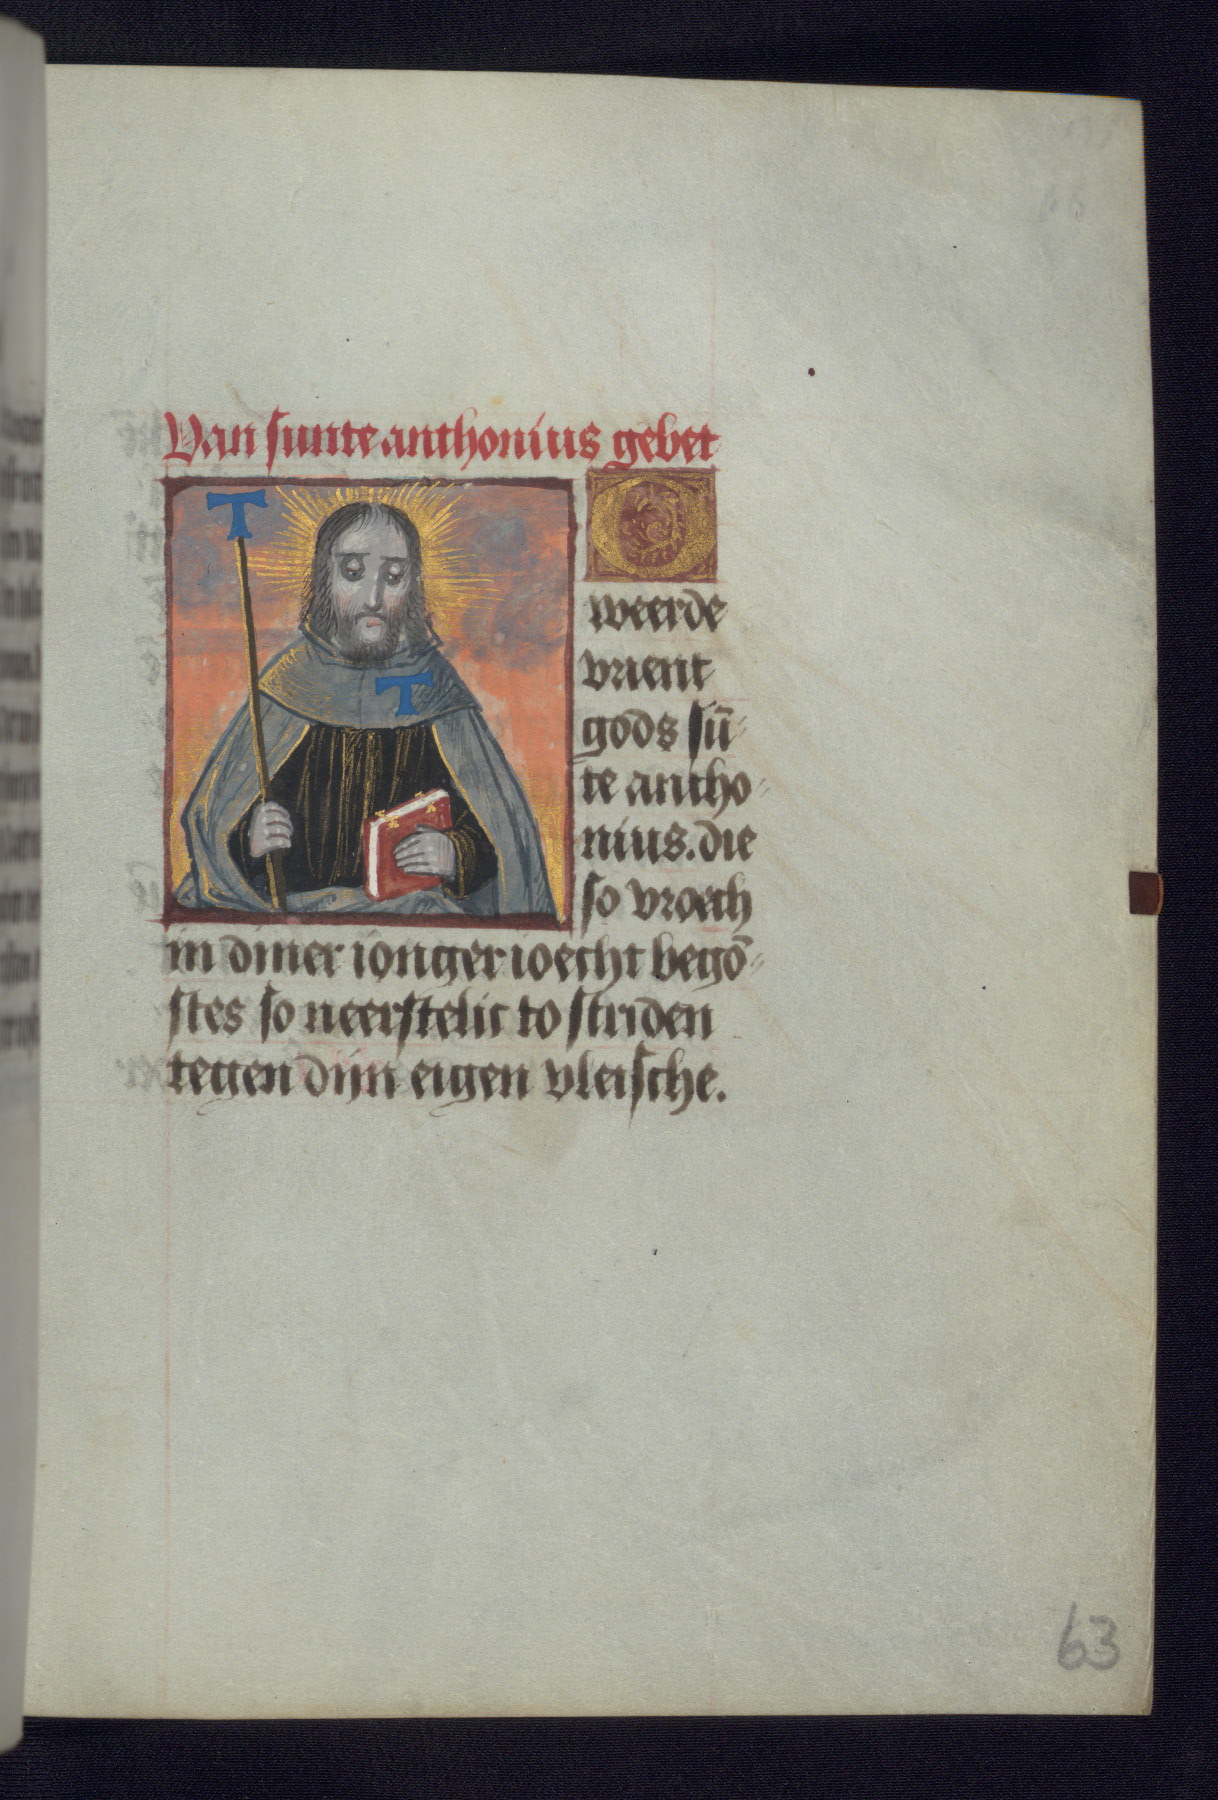 Van sunte anthonius gebet
O
weerde
vrient
gods sū
te antho
nius. die
so vroech
in diner ionger ioecht begō
stes so neerstelic to striden
tegen dijn eigen vleische.
T
T
63